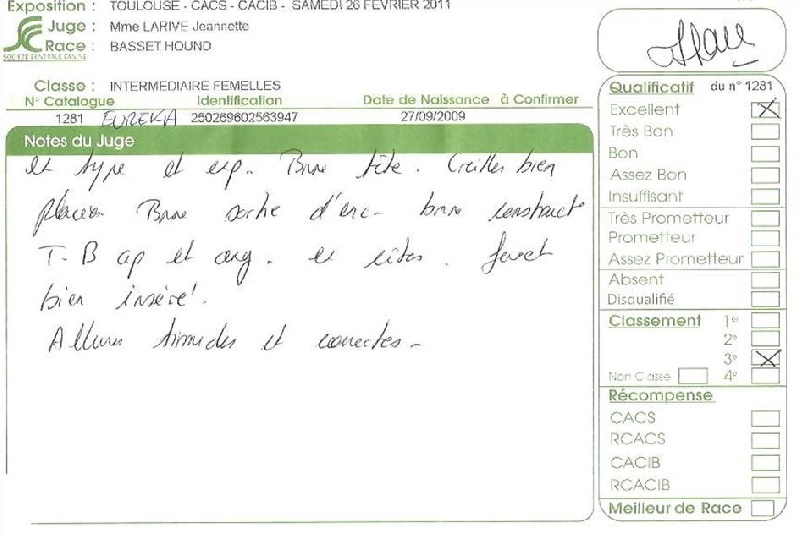 Exposition : TOULOUSE - CACS - CACIB - SAMEDI 26 FEVRIER 2011
Juge : Mme LARIVE Jeannette
Race : BASSET HOUND
SOCIETE CENTRALE CANINE
Classe : INTERMEDIAIRE FEMELLES
N° Catalogue Identification Date de Naissance à Confirmer
1281 EUREKA 250269602563947 27/09/2009
Notes du Juge
et type et exp. Bne tête. Oreilles bien
placées Bne sortie d'enc- bonne construct
T-B ap et ang. et côtes. fouet
bien inséré.
Allures timides et correctes-
Qualificatif du n° 1281
Excellent
Très Bon
Bon
Assez Bon
Insuffisant
Très Prometteur
Prometteur
Assez Prometteur
Absent
Disqualifié
Classement 1er
2e
3e
Non Classe 4e
Récompense
CACS
RCACS
CACIB
RCACIB
Meilleur de Race